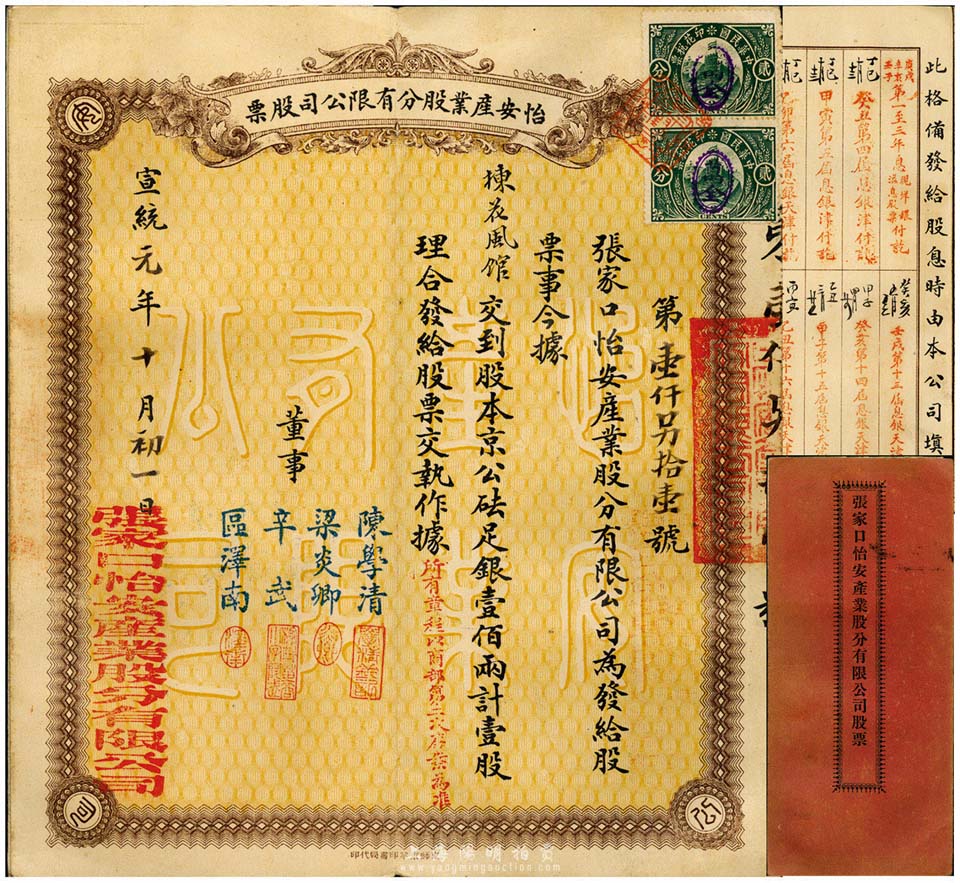 怡安產業股分有限公司股票
第壹仟另拾壹號
張家口怡安產業股分有限公司為發給股
票事今據
棟花風馆 交到股本京公砝足銀壹佰兩計壹股
理合發給股票交執作據
所有章程以商部第二次廢業為准
董事
陳學清
梁炎卿
辛武
區澤南
宣統元年十月初一日
張家口怡安產業股分有限公司
中華民國印花稅票
貳分
CENTS
中華民國印花稅票
貳分
CENTS
此格備發給股息時由本公司填
庚戌辛亥壬子第一至三年息
癸丑第四屆息銀津付訖
甲寅第五屆息銀津付訖
乙卯第六屆息銀天津付訖
癸亥
壬戌第十三屆息銀天津
甲子
癸亥第十四屆息銀天津
乙丑
甲子第十五屆息銀天津
丙寅
乙丑第十六屆息銀天津
張家口怡安產業股分有限公司股票
上海陽明拍賣
www.yangmingauction.com